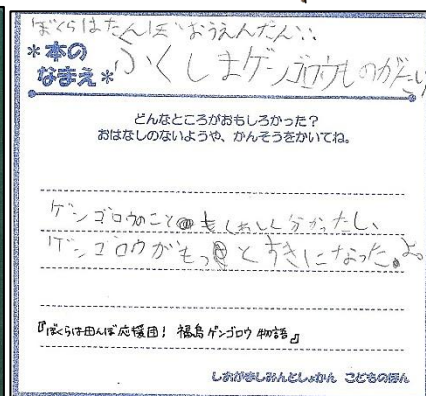 ぼくらはたんぼおうえんだん!!
*本の
なまえ*
ふくしまゲンゴロウものがたり
どんなところがおもしろかった?
おはなしのないようや、かんそうをかいてね。
ゲンゴロウのことも くわしく分かったし、
ゲンゴロウがもっとすきになったよ。
『ぼくらは田んぼ応援団! 福島ゲンゴロウ物語』
しおがましみんとしょかん こどものほん